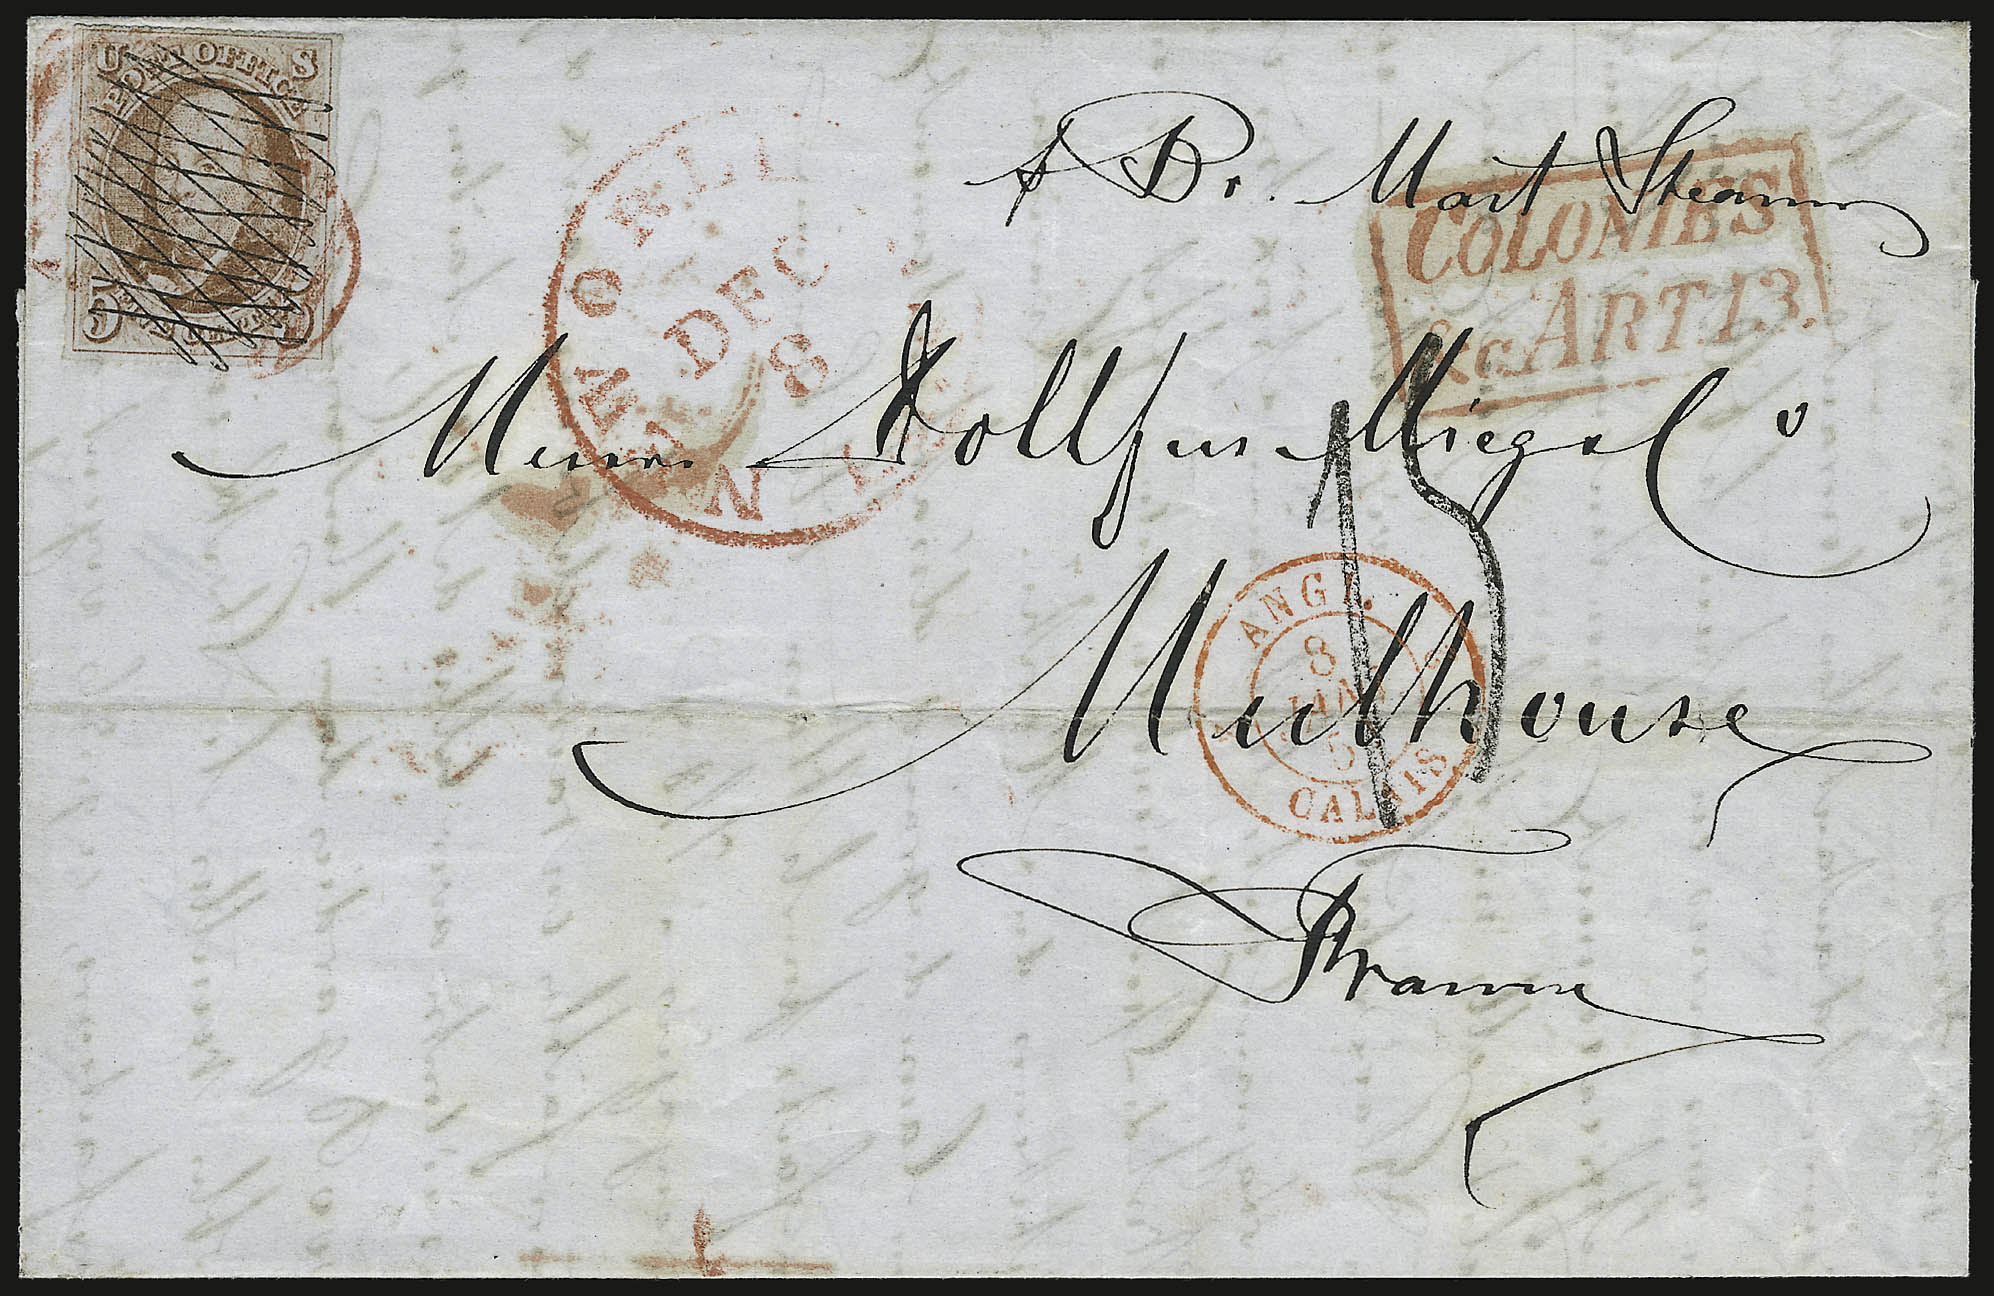 U S
POST OFFICE
5
p Br. Mart Steamer
COLONIES
&c. ART. 13.
NEW ORLE
DEC
8
Messrs Dollfus Mieg & Co
15
Mulhouse
ANGL.
8
JANV
5
CALAIS
France